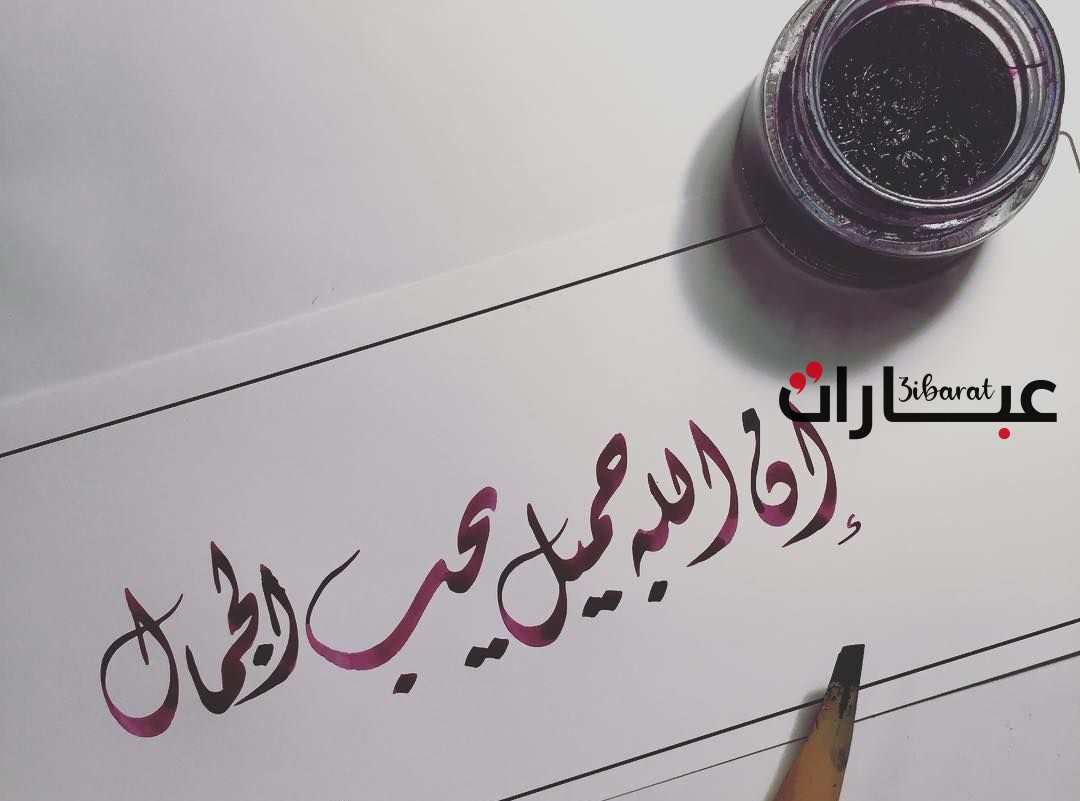 عبارات
3ibarat
إن الله جميل يحب الجمال